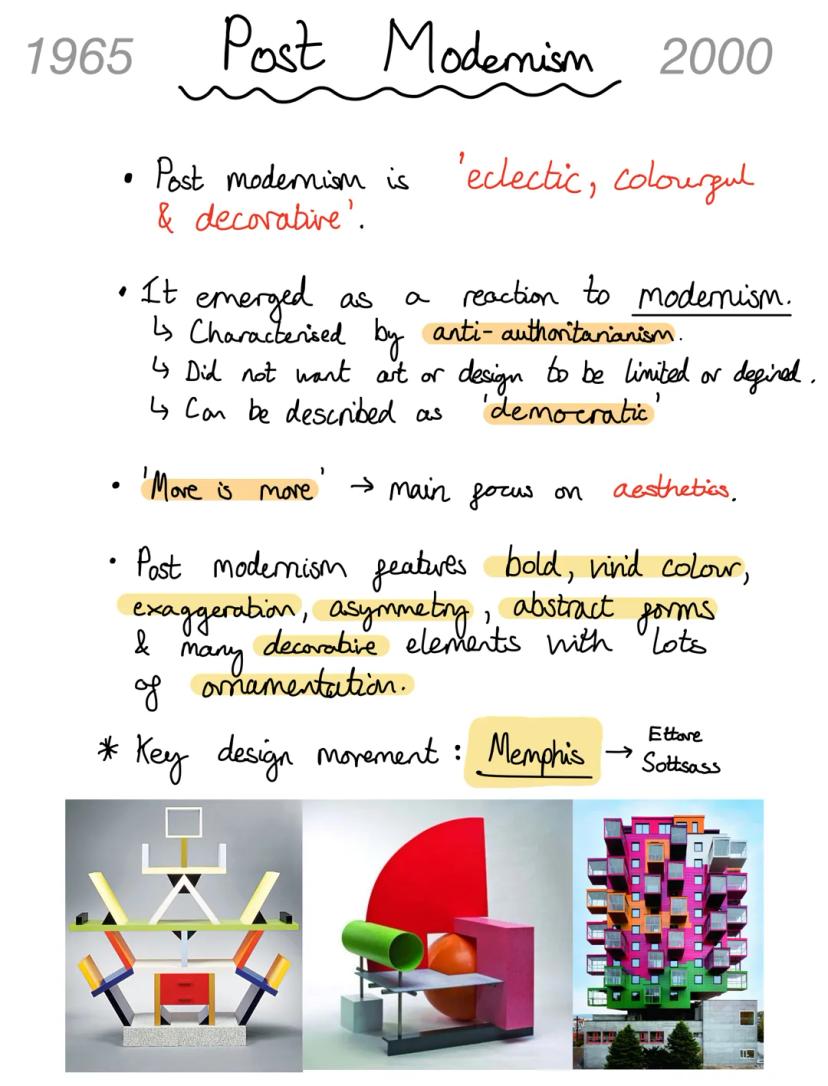 1965 Post Modernism 2000
• Post modernism is 'eclectic, colourful
& decorative'.
• It emerged as a reaction to modernism.
↳ Characterised by anti-authoritarianism.
↳ Did not want art or design to be limited or defined.
↳ Can be described as 'democratic'
• 'More is more' → main focus on aesthetics.
• Post modernism features bold, vivid colour,
exaggeration, asymmetry, abstract forms
& many decorative elements with lots
of ornamentation.
* Key design movement: Memphis → Ettore
Sottsass